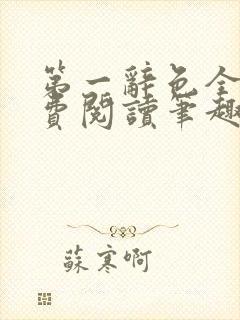 第一辭色全
費閱讀筆趣
蘇寒啊